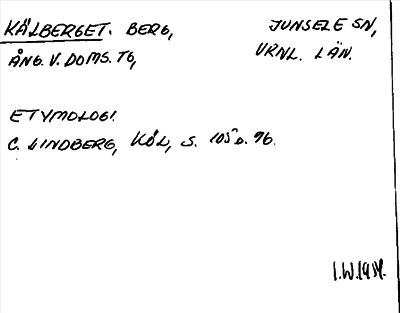 KÄLBERGET. BERG, JUNSELE SN,
ÅNG. V. DOMS. TG, VRNL. LÄN.
ETYMOLOGI.
C. LINDBERG, KÖL, S. 105 o. 96.
I.W.